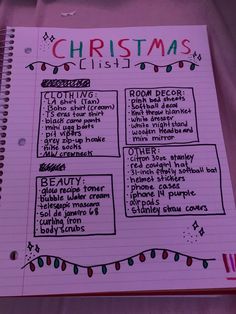 CHRISTMAS
[list]
CLOTHING:
• LA shirt (Tan)
• Boho shirt (cream)
• TS eras tour shirt
• black camo pants
• mini ugg boots
• pit vipers
• grey zip-up hoodie
• nike socks
• crewneck
ROOM DECOR:
• pink bed sheets
• Softball decor
• knit throw blanket
• white dresser
• white night stand
• wooden headboard
• mini mirror
BEAUTY:
• glow recipe toner
• bubble water cream
• telescopic mascara
• sol de janeiro 68
• curling iron
• body scrubs
OTHER:
• citron 30oz stanley
• red cowgirl hat
• 31-inch firefly softball bat
• helmet stickers
• phone cases
• iphone 14 purple
• airpods
• stanley straw covers